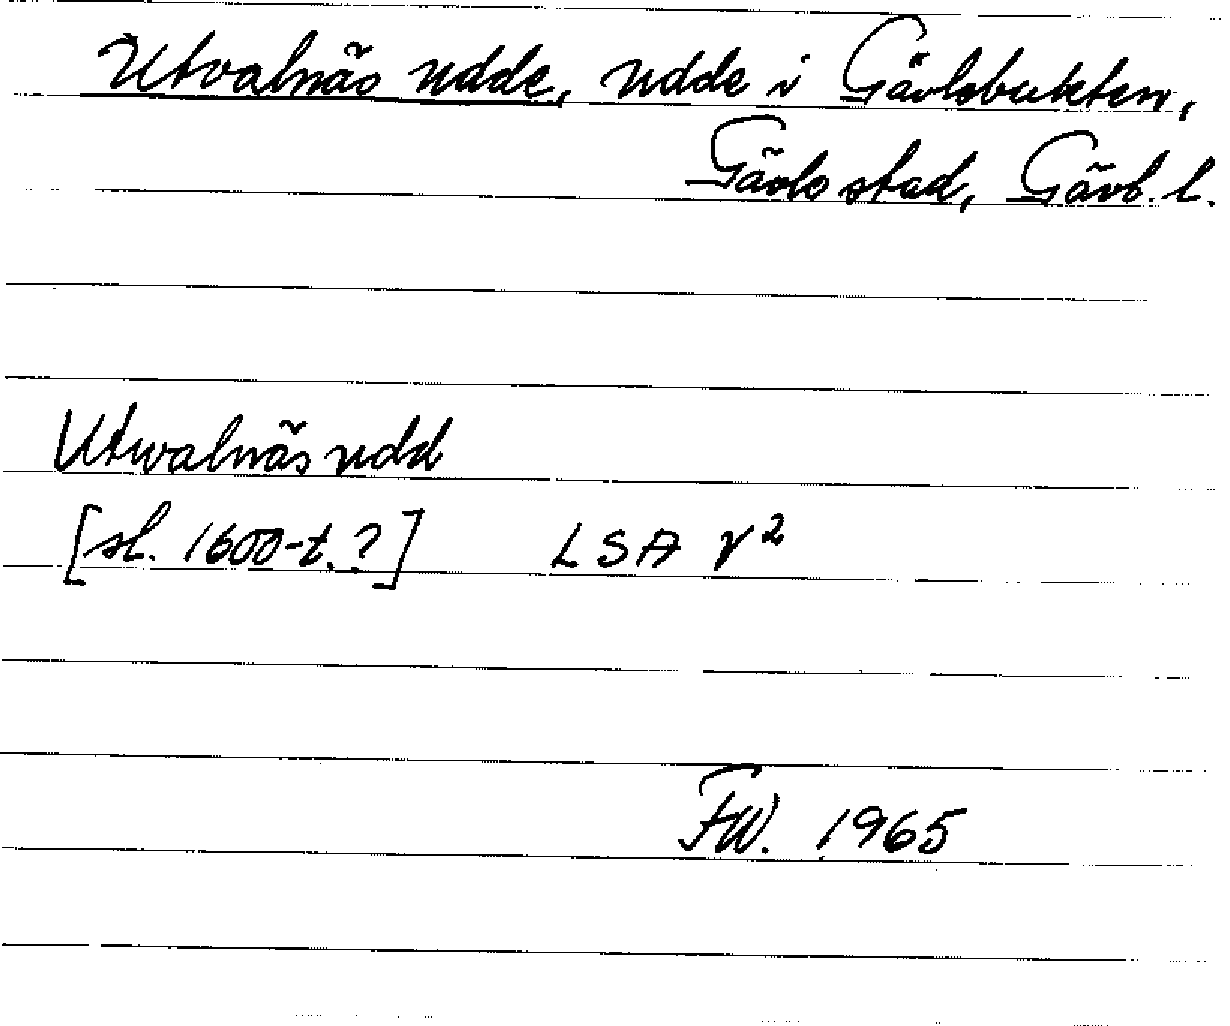 Utvalnäs udde, udde i Gävlebukten,
Gävle stad, Gävl. l.
Utwalnäs udd
[sl. 1600-t.?] LSA γ²
FW. 1965